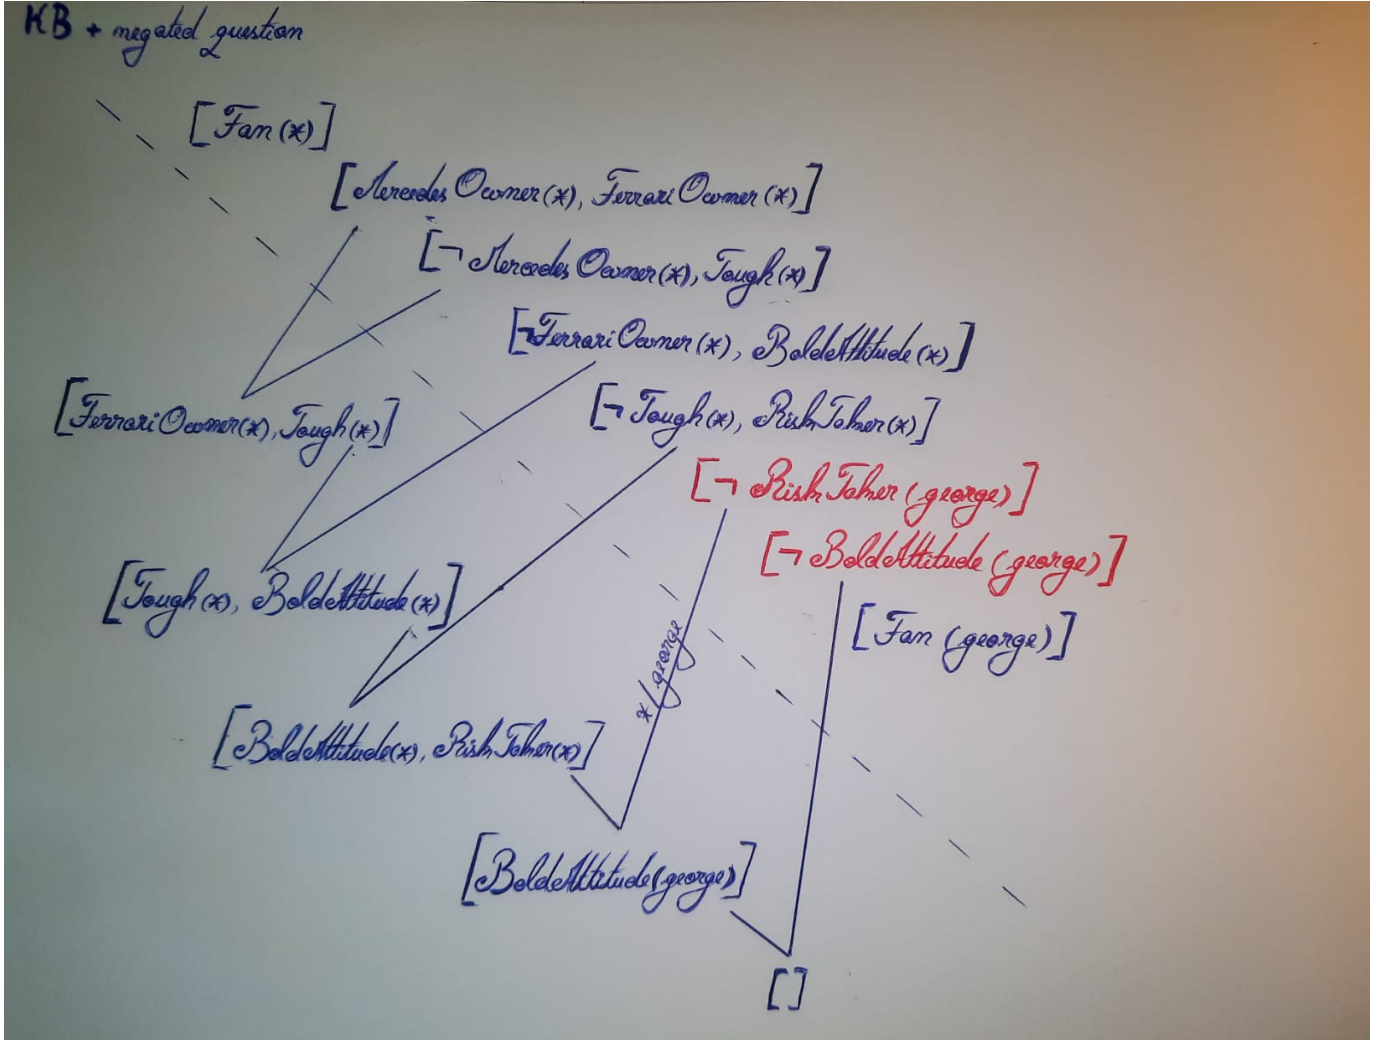 KB + negated question
[Fan(x)]
[Mercedes Owner(x), Ferrari Owner(x)]
[¬ Mercedes Owner(x), Tough(x)]
[¬Ferrari Owner(x), BoldAttitude(x)]
[Ferrari Owner(x), Tough(x)]
[¬ Tough(x), RiskTaker(x)]
[¬ RiskTaker(george)]
[¬ BoldAttitude(george)]
[Tough(x), BoldAttitude(x)]
[Fan(george)]
x/george
[BoldAttitude(x), RiskTaker(x)]
[BoldAttitude(george)]
[]